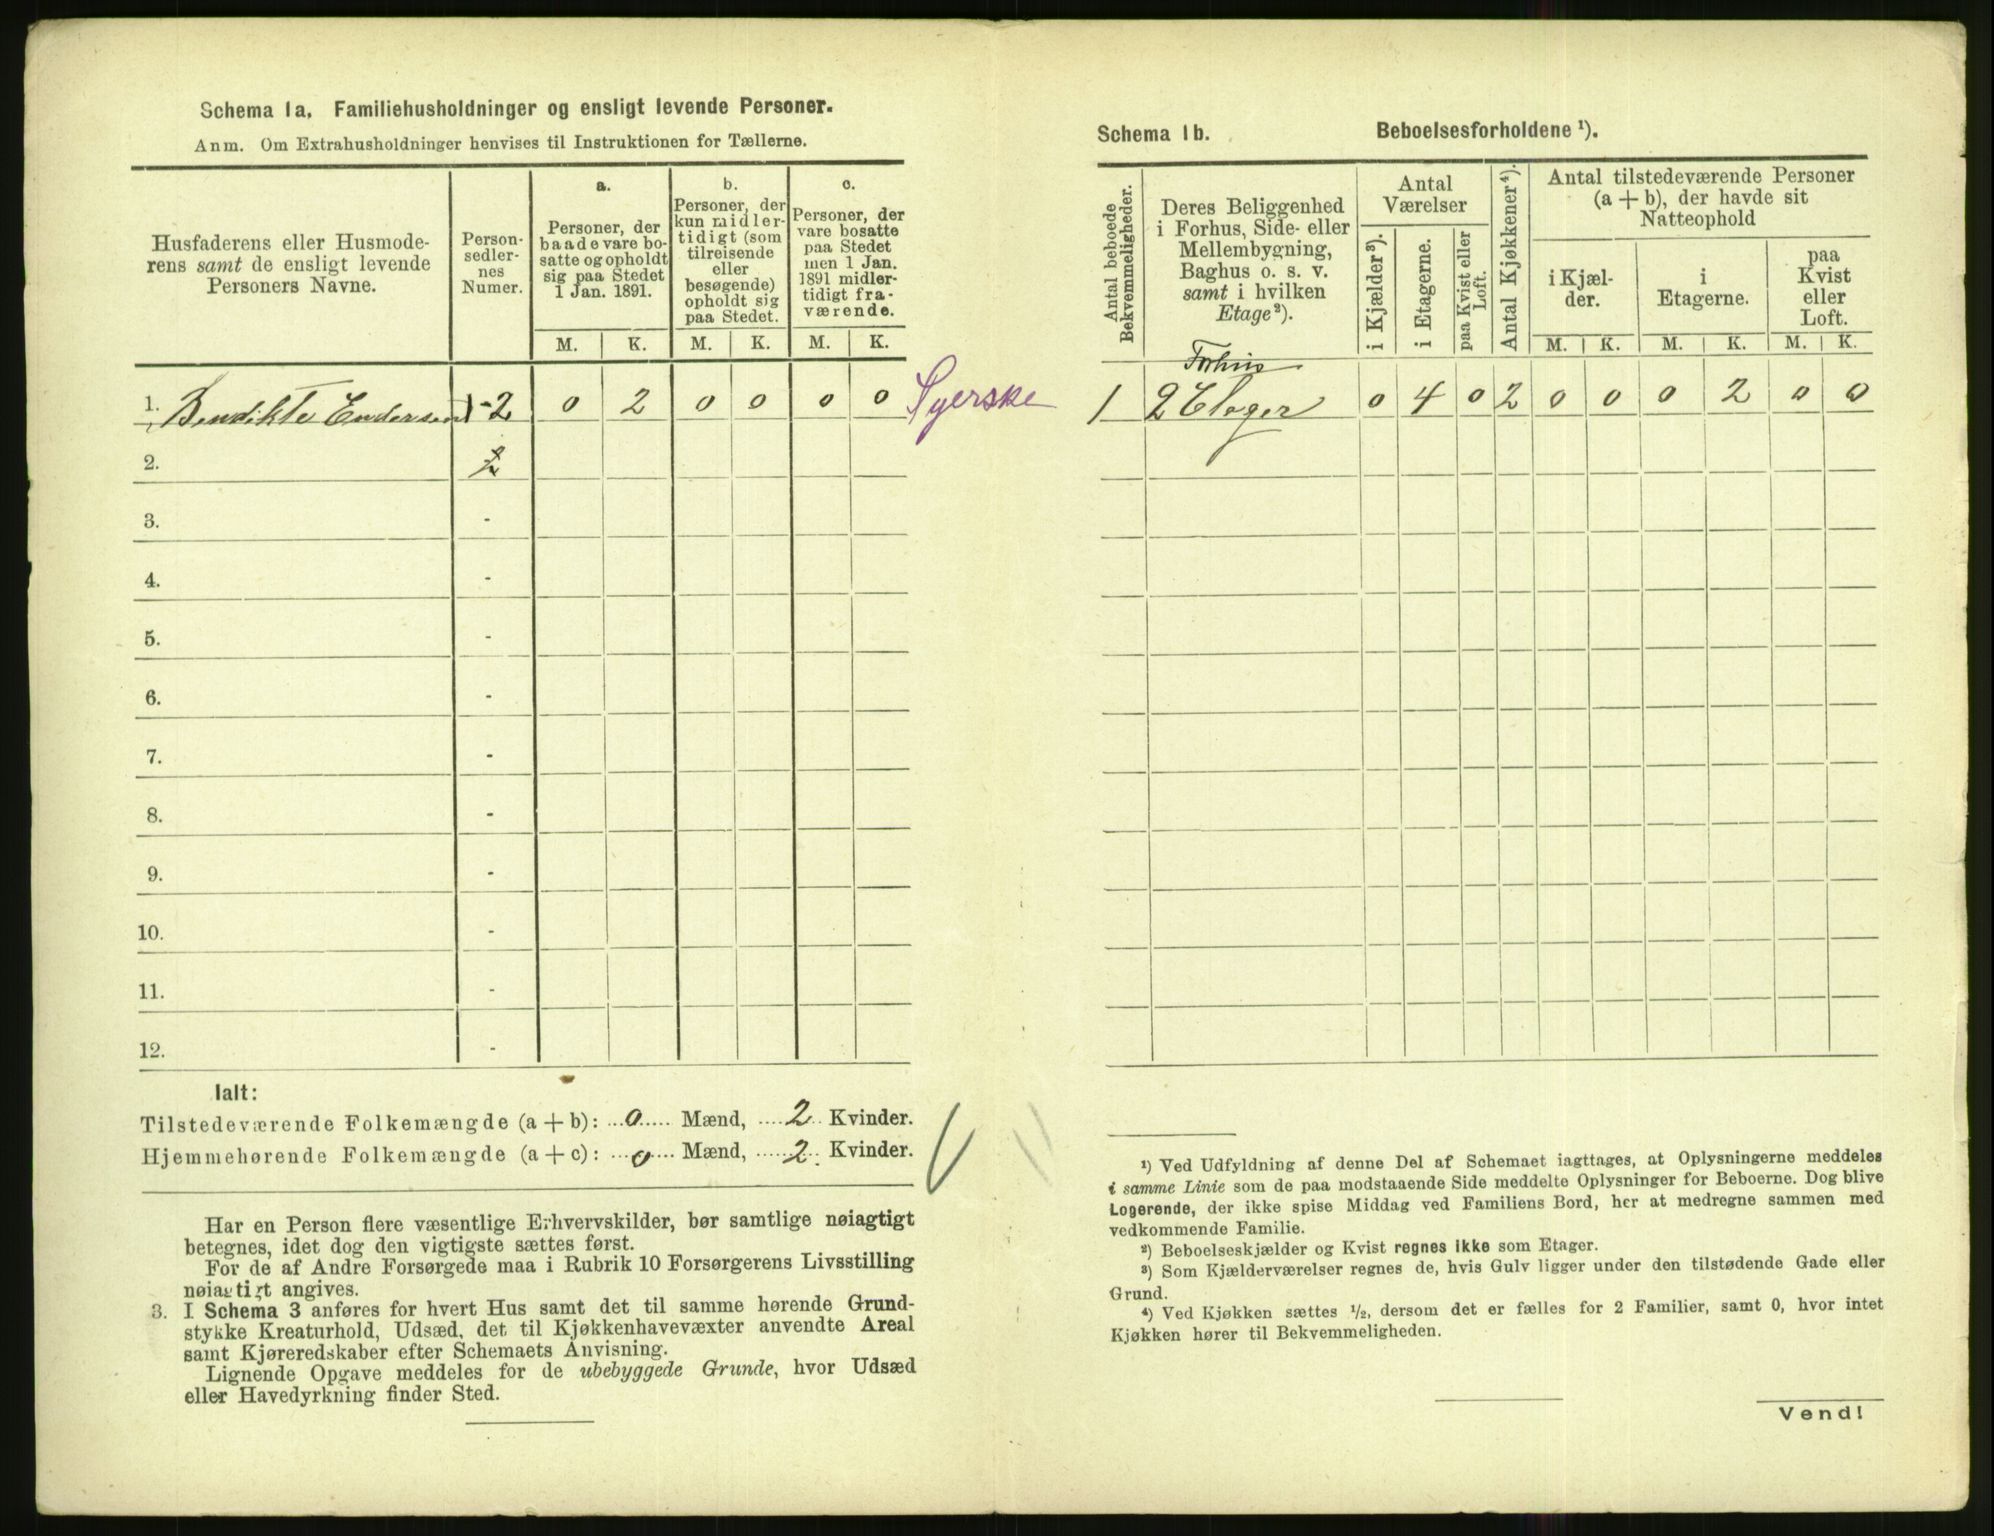 Schema 1a. Familiehusholdninger og ensligt levende Personer.
Anm. Om Extrahusholdninger henvises til Instruktionen for Tællerne.
Husfaderens eller Husmode-
rens samt de ensligt levende
Personers Navne.
Person-
sedler-
nes
Numer.
a.
Personer, der
baade vare bo-
satte og opholdt
sig paa Stedet
1 Jan. 1891.
b.
Personer, der
kun midler-
tidigt (som
tilreisende
eller
besøgende)
opholdt sig
paa Stedet.
c.
Personer, der
vare bosatte
paa Stedet
men 1 Jan.
1891 midler-
tidigt fra-
værende.
M. K. M. K. M. K.
1. Bendikte Endersen 1-2 0 2 0 0 0 0 Syerske
2.
3. -
4. -
5. -
6. -
7. -
8. -
9. -
10. -
11. -
12. -
Ialt:
Tilstedeværende Folkemængde (a + b): 0 Mænd, 2 Kvinder.
Hjemmehørende Folkemængde (a + c): 0 Mænd, 2 Kvinder.
Har en Person flere væsentlige Erhvervskilder, bør samtlige nøiagtigt
betegnes, idet dog den vigtigste sættes først.
For de af Andre Forsørgede maa i Rubrik 10 Forsørgerens Livsstilling
nøiagtigt angives.
3. I Schema 3 anføres for hvert Hus samt det til samme hørende Grund-
stykke Kreaturhold, Udsæd, det til Kjøkkenhavevæxter anvendte Areal
samt Kjøreredskaber efter Schemaets Anvisning.
Lignende Opgave meddeles for de ubebyggede Grunde, hvor Udsæd
eller Havedyrkning finder Sted.
Schema 1b. Beboelsesforholdene ¹).
Antal beboede
Bekvemmeligheder.
Deres Beliggenhed
i Forhus, Side- eller
Mellembygning,
Baghus o. s. v.
samt i hvilken
Etage²).
Antal
Værelser
i Kjælder³).
i Etagerne.
paa Kvist eller
Loft.
Antal Kjøkkener⁴).
Antal tilstedeværende Personer
(a + b), der havde sit
Natteophold
i Kjæl-
der.
i
Etagerne.
paa
Kvist
eller
Loft.
M. K. M. K. M. K.
Forhus
1 2 Etager 0 4 0 2 0 0 0 2 0 0
¹) Ved Udfyldning af denne Del af Schemaet iagttages, at Oplysningerne meddeles
i samme Linie som de paa modstaaende Side meddelte Oplysninger for Beboerne. Dog blive
Logerende, der ikke spise Middag ved Familiens Bord, her at medregne sammen med
vedkommende Familie.
²) Beboelseskjælder og Kvist regnes ikke som Etager.
³) Som Kjælderværelser regnes de, hvis Gulv ligger under den tilstødende Gade eller
Grund.
⁴) Ved Kjøkken sættes ½, dersom det er fælles for 2 Familier, samt 0, hvor intet
Kjøkken hører til Bekvemmeligheden.
Vend!